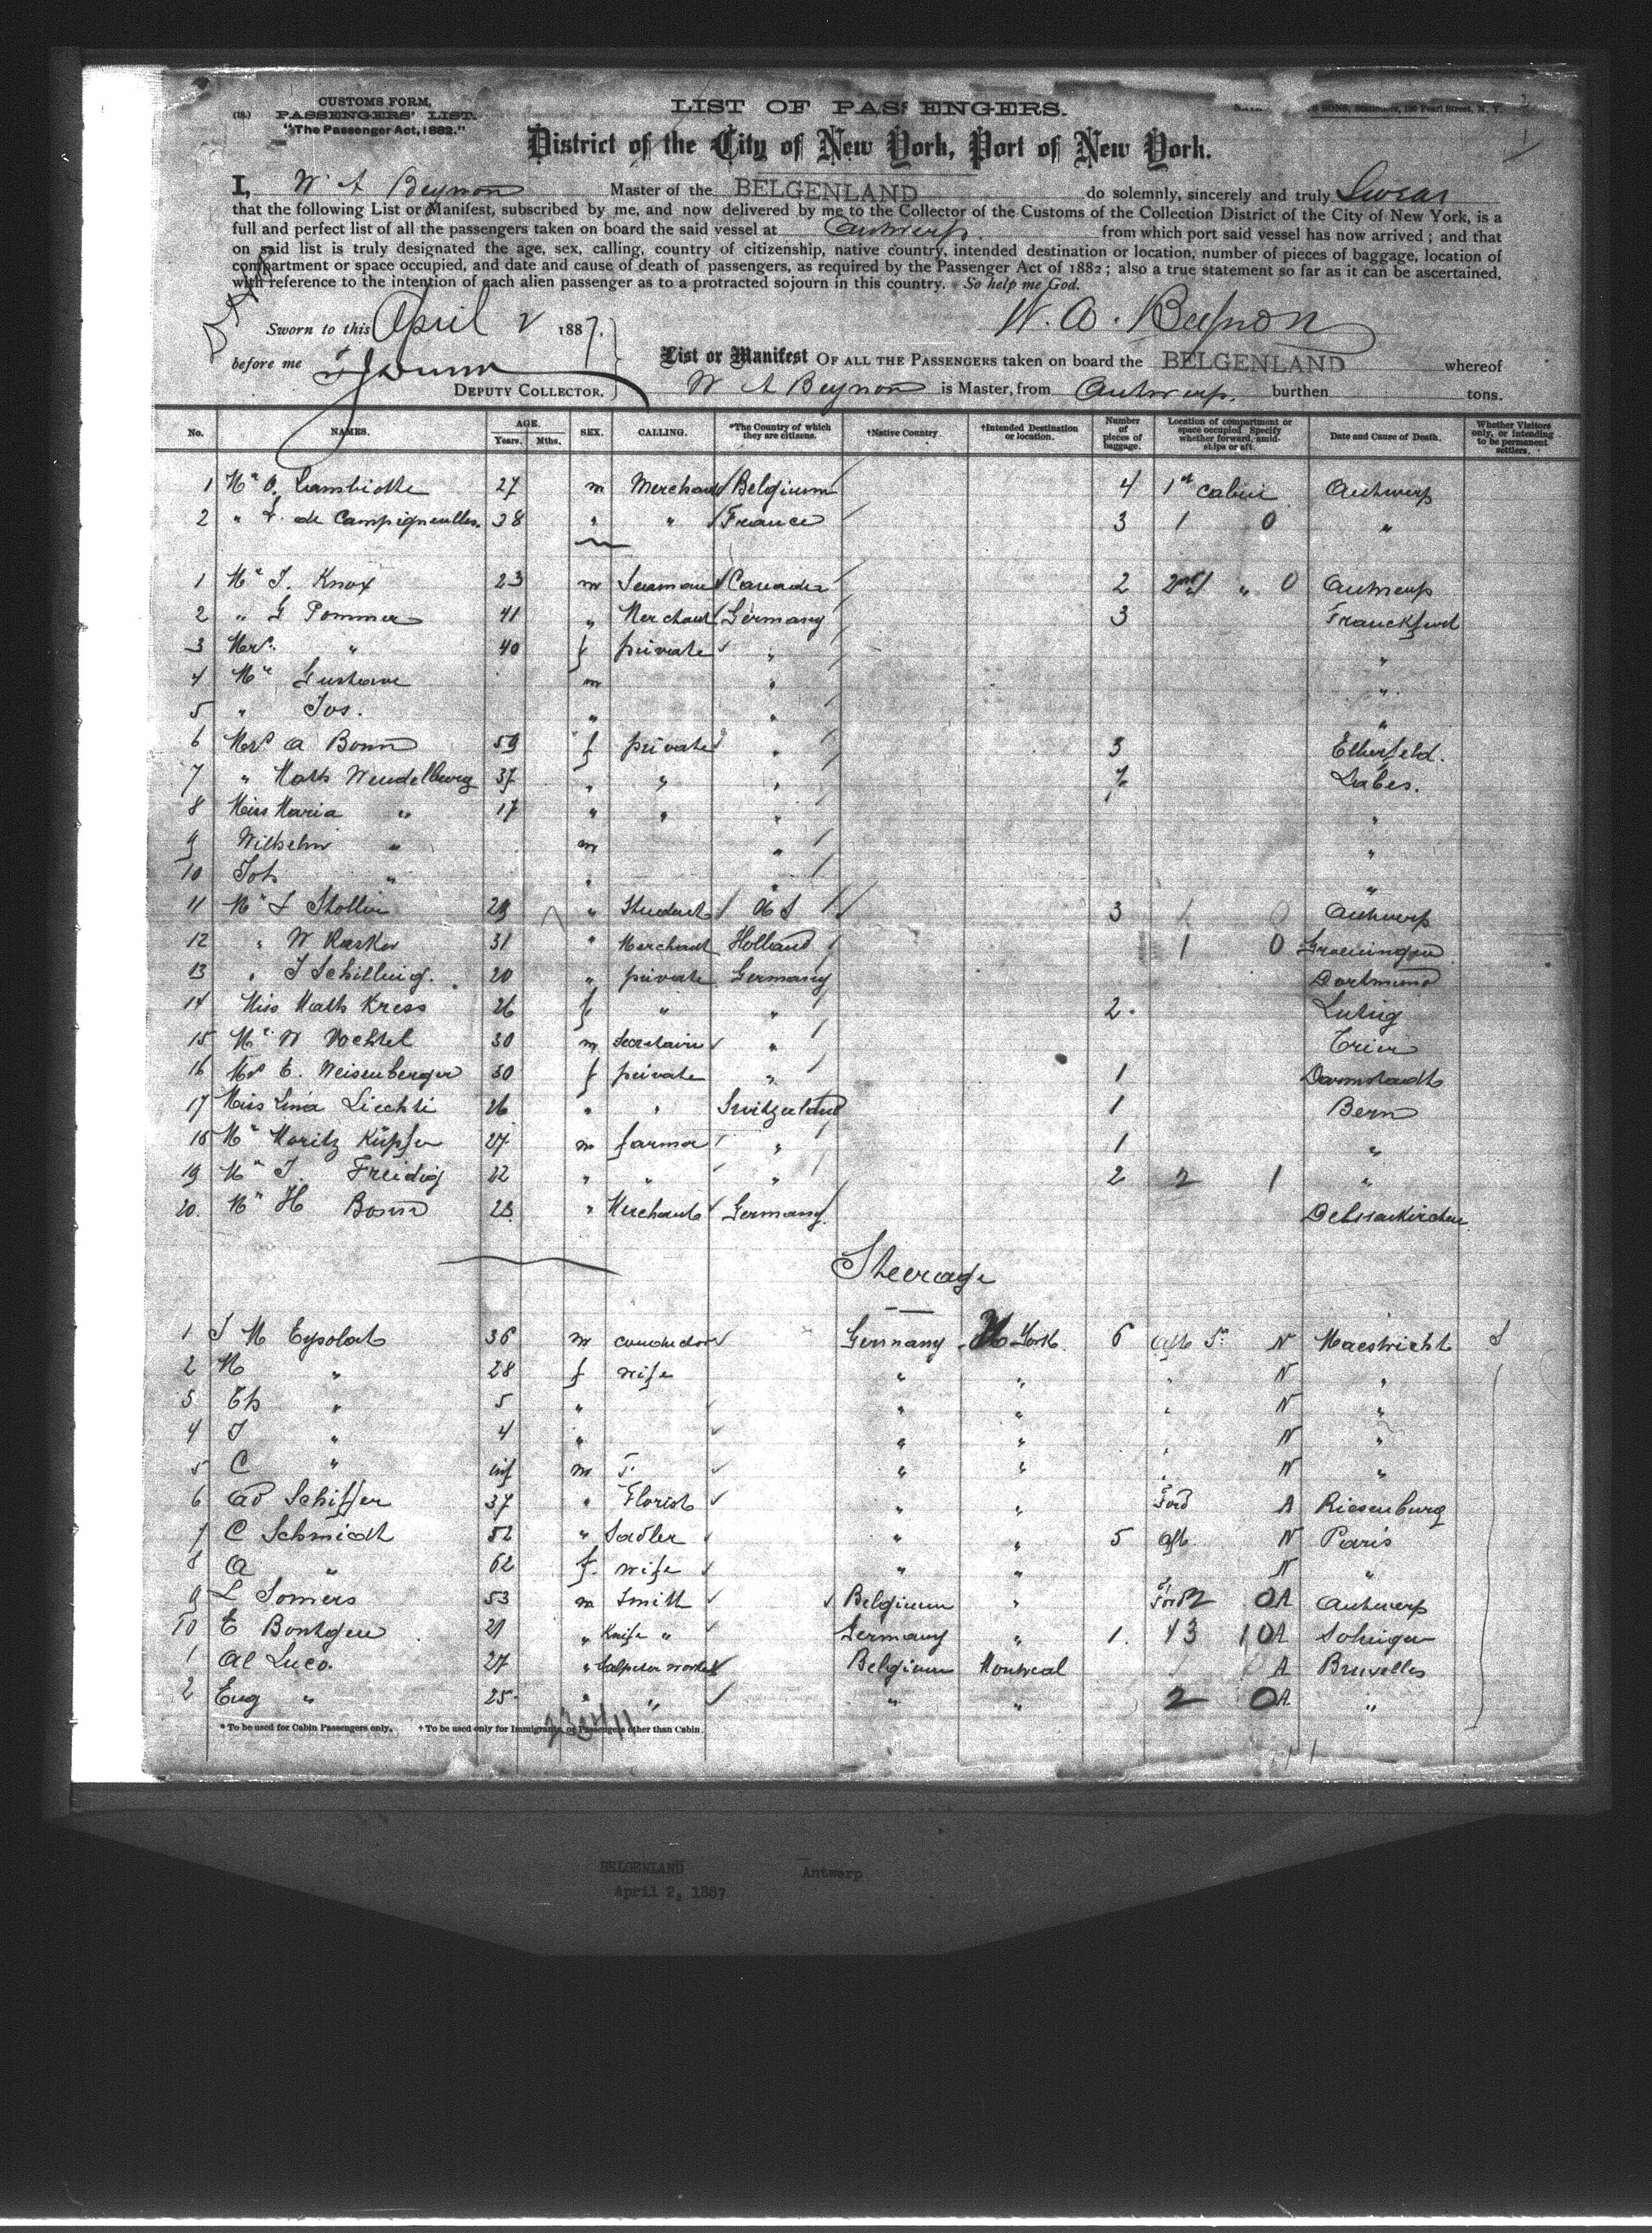 (18.)
CUSTOMS FORM,
PASSENGERS' LIST.
"The Passenger Act, 1882."
LIST OF PASSENGERS.
SONS, Stationers, 136 Pearl Street, N. Y.
District of the City of New York, Port of New York.
I, W A Beynon Master of the BELGENLAND do solemnly, sincerely and truly Swear
that the following List or Manifest, subscribed by me, and now delivered by me to the Collector of the Customs of the Collection District of the City of New York, is a
full and perfect list of all the passengers taken on board the said vessel at Antwerp from which port said vessel has now arrived; and that
on said list is truly designated the age, sex, calling, country of citizenship, native country, intended destination or location, number of pieces of baggage, location of
compartment or space occupied, and date and cause of death of passengers, as required by the Passenger Act of 1882; also a true statement so far as it can be ascertained,
with reference to the intention of each alien passenger as to a protracted sojourn in this country. So help me God.
Sworn to this April 2 1887. W. A. Beynon
before me
DEPUTY COLLECTOR.
List or Manifest OF ALL THE PASSENGERS taken on board the BELGENLAND whereof
W A Beynon is Master, from Antwerp. burthen tons.
No. NAMES. AGE. Years. Mths. SEX. CALLING. *The Country of which they are citizens. †Native Country. †Intended Destination or location. Number of pieces of baggage. Location of compartment or space occupied. Specify whether forward, amidships or aft. Date and Cause of Death. Whether Visitors only, or intending to be permanent settlers.
1 Mr O. Lambiotte 27 m Merchant Belgium 4 1st cabin Antwerp
2 " de Campigneulles. 38 " " France 3 1 0 "
1 Mr J. Knox 23 m Seaman Canada 2 2nd " 0 Antwerp
2 " G Pommer 41 " Merchant Germany 3 Franckfurt
3 Mrs. " 40 f private " "
4 Mr Gustave m " "
5 " Jos. " " "
6 Mrs A Bonn 59 f private " 3 Elberfeld.
7 " Math Wendelburg 37 " " " Labes.
8 Miss Maria " 17 " " " "
9 Wilhelm " m " "
10 Joh " " " "
11 Mr 29 " Student U S 3 1 0 Antwerp
12 " W Rasker 31 " Merchant Holland 1 0 Groeningen
13 " J Schilling. 20 " private Germany Dortmund
14 Miss Math Kress 26 f " " 2
15 Mr W Vochtel 30 m Secretaire " Trier
16 Mrs E. Weisenberger 30 f private " 1 Darmstadt
17 Miss Lina Liechti 26 " " Switzerland 1 Bern
18 Mr Moritz Küpfer 27 m farmer " 1 "
19 Mr J. Freidig 22 " " " 2 2 1 "
20. Mr H Bonn 23 " Merchant Germany.
Steerage
1 J M Eysolat 36 m conductor Germany N York 6 Aft N Maestricht
2 M " 28 f wife " " " N "
3 Eh " 5 " " " " N "
4 J " 4 " " " " N "
5 C " inf m " " " N "
6 Ad Schiffer 37 " Florist " " Ford A Riesenburg
7 C Schmidt 52 " Sadler " " 5 Aft. N Paris
8 A " 62 f. wife " " N "
9 L Somers 53 m Smith Belgium " 2 0 A Antwerp
10 E Bontgen 21 " Knife " Germany " 1. 43 1 0 A Solingen
1 Al Luco. 27 " Belgium Montreal A Bruxelles
2 Eug " 25 " " " " 2 0 A "
* To be used for Cabin Passengers only. † To be used only for Immigrants, or Passengers other than Cabin.
BELGENLAND Antwerp
April 2, 1887